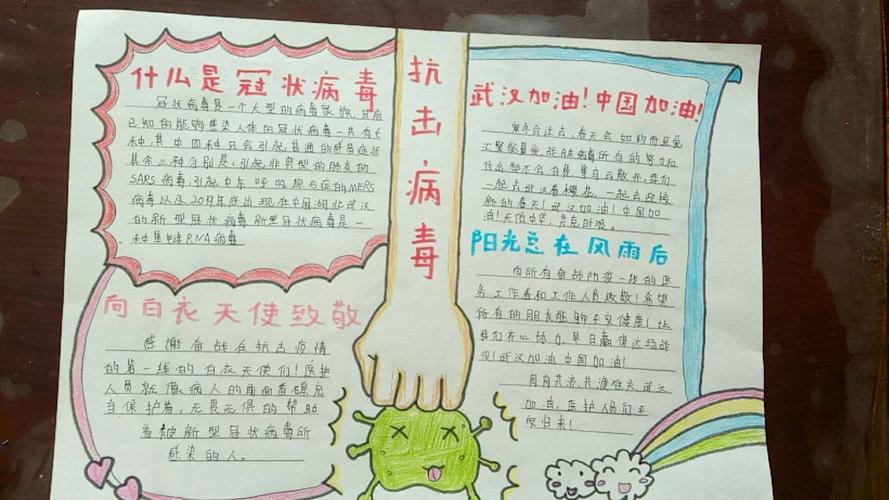 什么是冠状病毒
冠状病毒是一个大型的病毒家族,目前
已知的能够感染人体的冠状病毒一共有七
种,其中四种只会引起普通的感冒症状
其余三种分别是:引起非典型的肺炎的
SARS病毒,引起中东呼吸综合症的MERS
病毒以及2019年底出现在中国湖北武汉
的新型冠状病毒新型冠状病毒是一
种单链RNA病毒
向白衣天使致敬
感谢奋战在抗击疫情
的第一线的白衣天使们!医护
人员就像病人的
当保护着,无畏无惧的帮助
着被新型冠状病毒所
感染的人。
抗击病毒
武汉加油!中国加油!
寒冬会过去,春天会如约而至爱
汇聚能量爱,战胜病毒所有的努力和
付出都不会白费等白云散开,我们
一起去武汉看樱花,一起去迎接
新的春天!武汉加油!中国加
油!天佑中华,共克时艰。
阳光总在风雨后
向所有奋战防疫一线的医
务工作者和工作人员致敬!希望
所有的朋友能够平安健康!让
我们齐心协力早日赢得这场战
役!武汉加油中国加油!
同舟共济,共渡难关武汉
加油,医护人员们平
安归来!